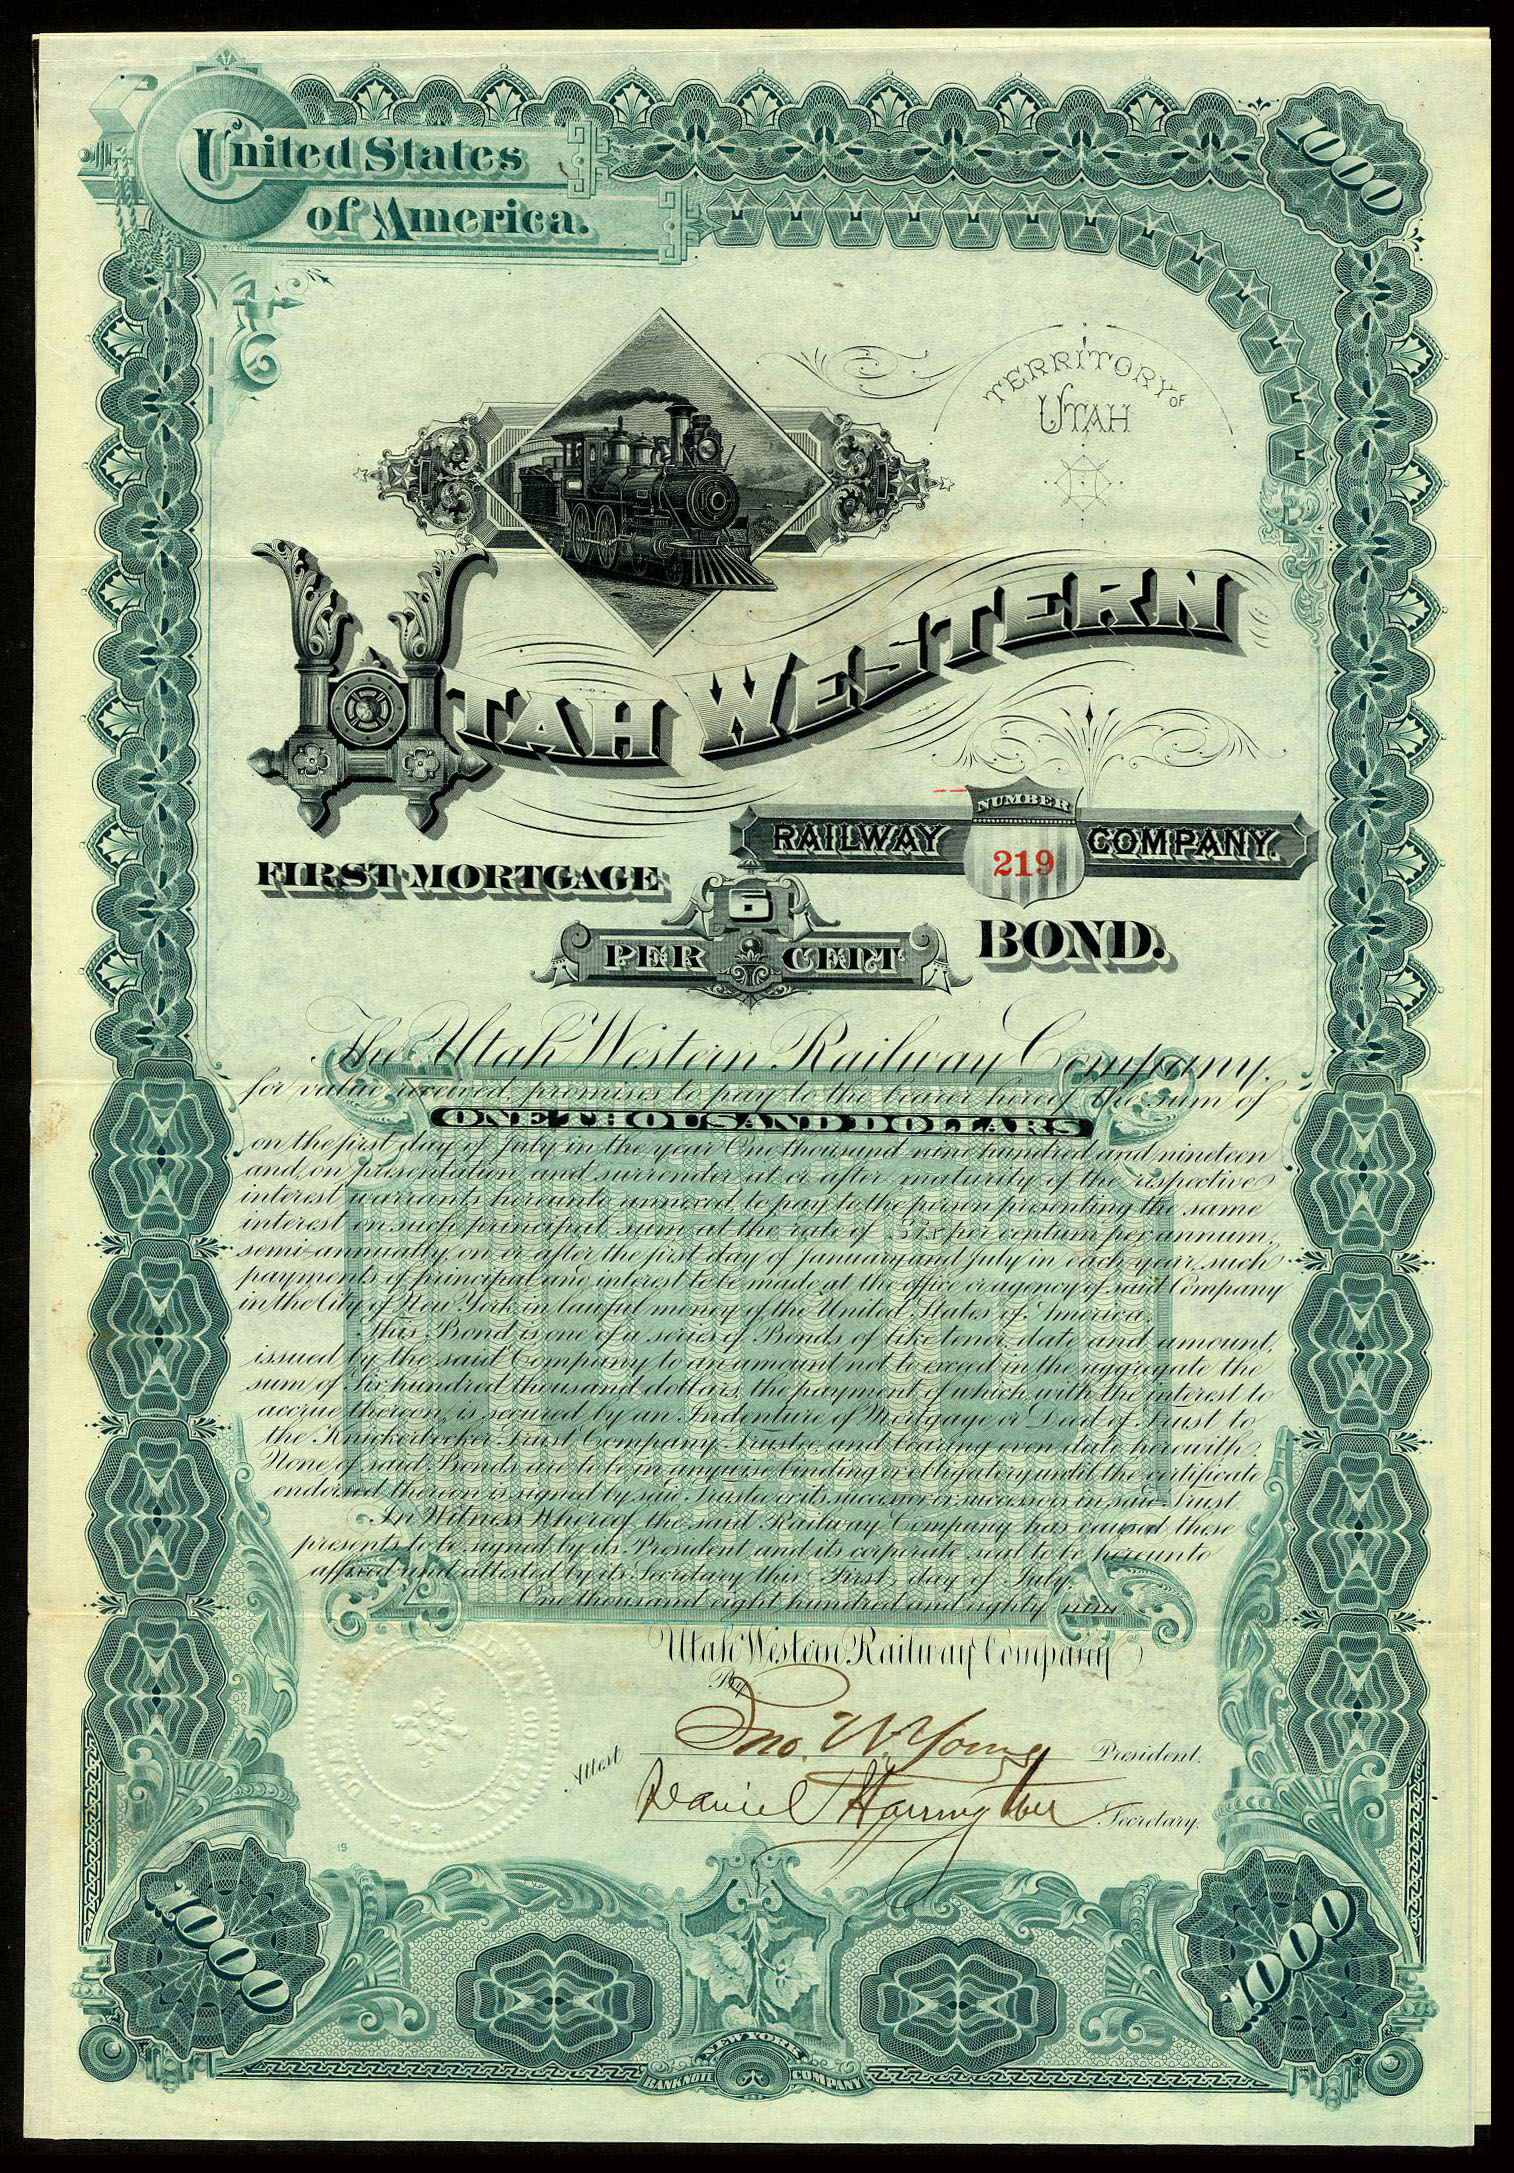 United States
of America.
1000
6
TERRITORY OF
UTAH
UTAH WESTERN
NUMBER
RAILWAY 219 COMPANY.
FIRST MORTGAGE
6
PER CENT BOND.
The Utah Western Railway Company,
for value received, promises to pay to the bearer hereof the sum of
ONE THOUSAND DOLLARS
on the first day of July in the year One thousand nine hundred and nineteen
and, on presentation and surrender at or after maturity of the respective
interest warrants hereunto annexed, to pay to the person presenting the same
interest on such principal sum at the rate of Six per centum per annum,
semi-annually, on or after the first day of January and July in each year, such
payments of principal and interest to be made at the office or agency of said Company
in the City of New York, in lawful money of the United States of America.
This Bond is one of a series of Bonds of like tenor, date and amount,
issued by the said Company to an amount not to exceed in the aggregate the
sum of Six hundred thousand dollars, the payment of which with the interest to
accrue thereon, is secured by an Indenture of Mortgage or Deed of Trust to
the Knickerbocker Trust Company, Trustee, and bearing even date herewith.
None of said Bonds are to be in anywise binding or obligatory until the certificate
endorsed thereon is signed by said Trustee or its successor or successors in said Trust.
In Witness Whereof the said Railway Company has caused these
presents to be signed by its President and its corporate seal to be hereunto
affixed and attested by its Secretary this First day of July,
One thousand eight hundred and eighty nine
Utah Western Railway Company
By
Jno. W. Young President.
Attest
Daniel Harrington Secretary.
19
1,000
1,000
NEW YORK
BANKNOTE COMPANY